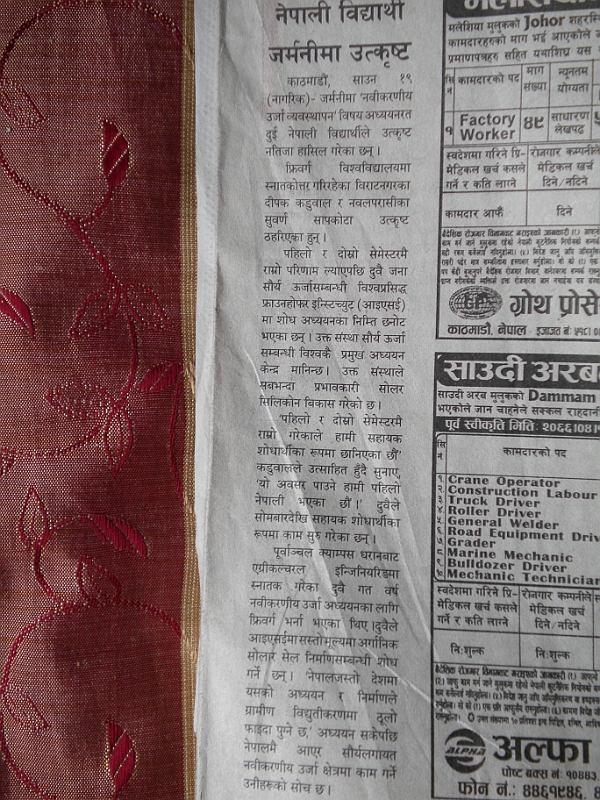 नेपाली विद्यार्थी
जर्मनीमा उत्कृष्ट
काठमाडौं, साउन १९
(नागरिक)- जर्मनीमा 'नवीकरणीय
उर्जा व्यवस्थापन' विषय अध्ययनरत
दुई नेपाली विद्यार्थीले उत्कृष्ट
नतिजा हासिल गरेका छन् ।
फ्रिवर्ग विश्वविद्यालयमा
स्नातकोत्तर गरिरहेका विराटनगरका
दीपक कडुवाल र नवलपरासीका
सुवर्ण सापकोटा उत्कृष्ट
ठहरिएका हुन् ।
पहिलो र दोस्रो सेमेस्टरमै
राम्रो परिणाम ल्याएपछि दुवै जना
सौर्य ऊर्जासम्बन्धी विश्वप्रसिद्ध
फ्राउनहोफर इन्स्टिच्युट (आइएसई)
मा शोध अध्ययनका निम्ति छनोट
भएका छन् । उक्त संस्था सौर्य ऊर्जा
सम्बन्धी विश्वकै प्रमुख अध्ययन
केन्द्र मानिन्छ । उक्त संस्थाले
सबभन्दा प्रभावकारी सोलर
सिलिकोन बिकास गरेको छ ।
'पहिलो र दोस्रो सेमेस्टरमै
राम्रो गरेकाले हामी सहायक
शोधार्थीका रूपमा छानिएका छौं'
कडुवालले उत्साहित हुँदै सुनाए,
'यो अवसर पाउने हामी पहिलो
नेपाली भएका छौं ।' दुवैले
सोमबारदेखि सहायक शोधार्थीका
रूपमा काम सुरु गरेका छन् ।
पूर्वाञ्चल क्याम्पस धरानबाट
एग्रीकल्चरल इन्जिनियरिङमा
स्नातक गरेका दुवै गत वर्ष
नवीकरणीय उर्जा अध्ययनका लागि
फ्रिवर्ग भर्ना भएका थिए । दुवैले
आइएसईमा सस्तो मूल्यमा अर्गानिक
सोलार सेल निर्माणसम्बन्धी शोध
गर्ने छन् । 'नेपालजस्तो देशमा
यसको अध्ययन र निर्माणले
ग्रामीण विद्युतीकरणमा ठूलो
फाइदा पुग्ने छ,' अध्ययन सकेपछि
नेपालमै आएर सौर्यलगायत
नवीकरणीय उर्जा क्षेत्रमा काम गर्ने
उनीहरूको सोच छ ।
मलेशिया मुलुकको Johor शहरस्थि
कामदारहरुको माग भई आएकोले
प्रमाणपत्रहरु सहित यथाशिघ्र यस
सि नं कामदारको पद माग संख्या न्यूनतम योग्यता
१ Factory Worker ४९ साधारण लेखपढ
स्वदेशमा गरिने प्रि-मेडिकल खर्च कसले गर्ने र कति लाग्ने
रोजगार कम्पनीले मेडिकल खर्च दिने/नदिने
कामदार आफैं दिने
ग्रोथ प्रोसे
काठमाडौं, नेपाल
साउदी अरब
साउदी अरब मुलुकको Dammam
भएकोले जान चाहनेले सक्कल राहदानी
पूर्व स्वीकृति मिति: २०६६।०४।१
सि नं कामदारको पद
१ Crane Operator
२ Construction Labour
३ Truck Driver
४ Roller Driver
५ General Welder
६ Road Equipment Driv
७ Grader
८ Marine Mechanic
९ Bulldozer Driver
१० Mechanic Technician
स्वदेशमा गरिने प्रि-मेडिकल खर्च कसले गर्ने र कति लाग्ने
रोजगार कम्पनीले मेडिकल खर्च दिने/नदिने
नि:शुल्क नि:शुल्क
ALPHA अल्फा
पोष्ट बक्स नं: १०८४३
फोन नं.: ४४६१९४६